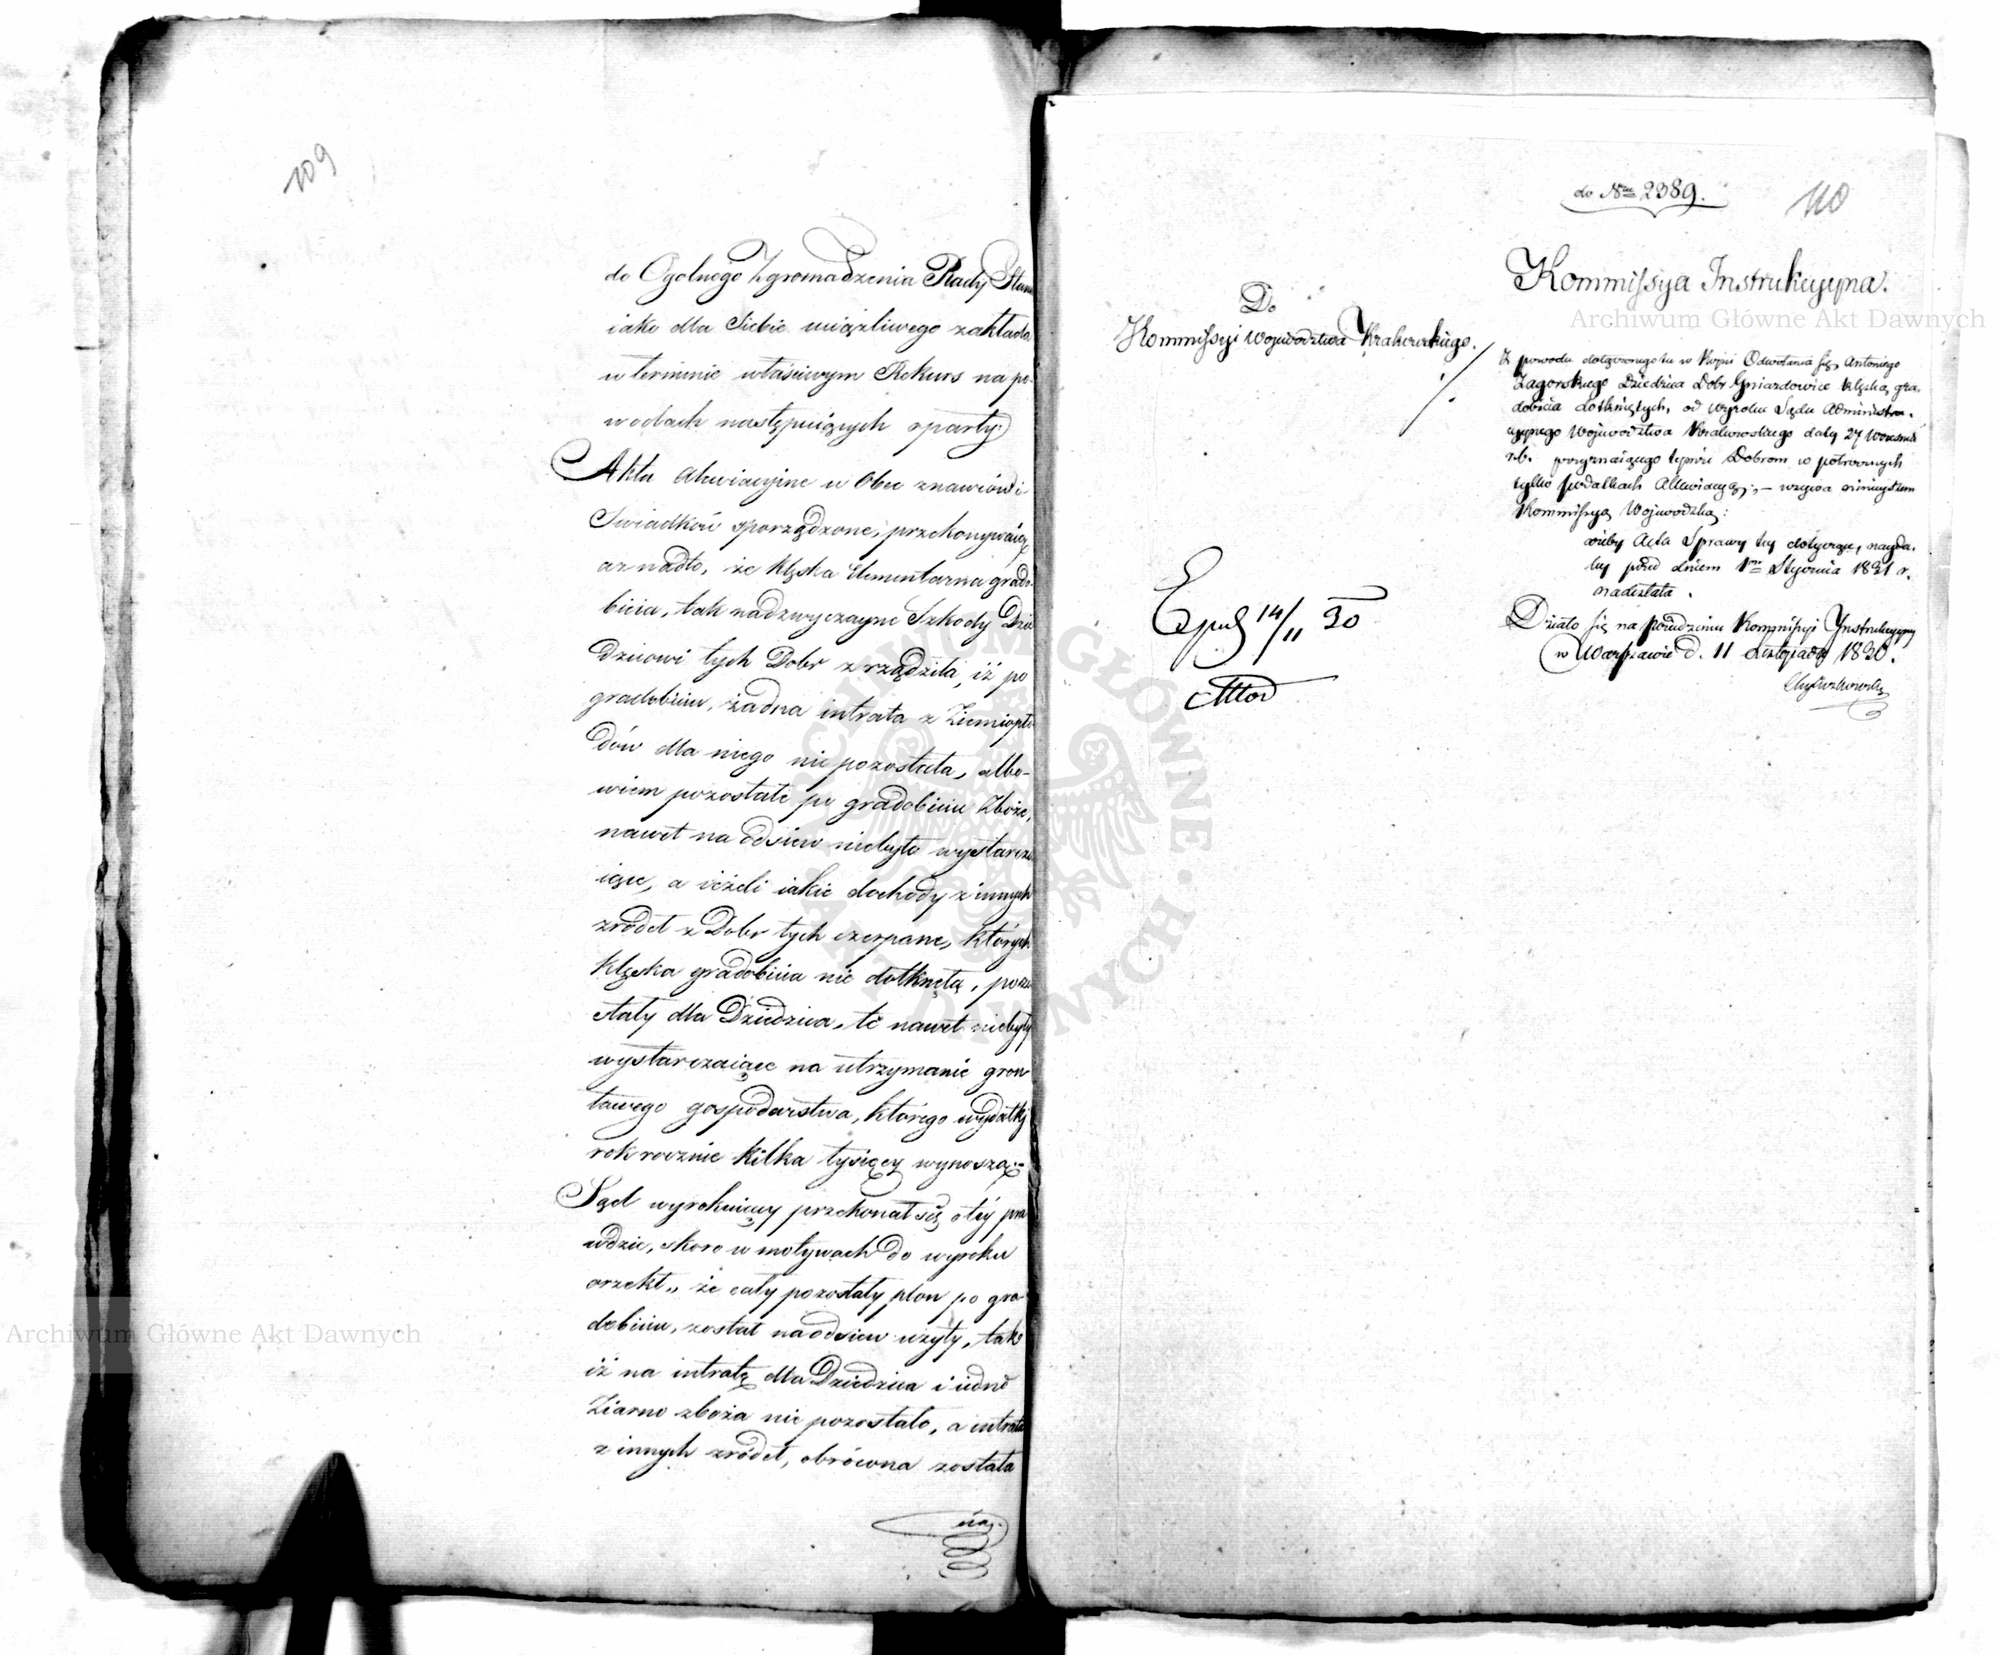 109
do Ogolnego Zgromadzenia Rady Stanu
iako dla Siebie uciążliwego zakłada
w terminie właściwym Rekurs na po-
wodach następuiących oparty:
Akta alewiacyine w obec znawców i
Swiadków sporządzone, przekonywaią
aż nadto, że klęska Elementarna grado-
bicia, tak nadzwyczayne Szkody Dzie
dzicowi tych Dobr zrządziła, iż po
gradobiciu, żadna intrata z Ziemiopło
dów dla niego nie pozostała, albo-
wiem pozostałe po gradobiciu Zboże,
nawet na odsiew niebyło wystarcza
iące, a ieżeli iakie dochody z innych
zrodeł z Dobr tych czerpane, których
klęska gradobicia nie dotknęła, pozo
stały dla Dziedzica, to nawet niebyły
wystarczaiące na utrzymanie gron
towego gospodarstwa, którego wydatki
rok rocznie kilka tysięcy wynoszą.
Sąd wyrokuiący przekonał się o téy pra
wdzie, skoro w motywach do wyroku
orzekł „ że cały pozostały plon po gra
dobiciu, został na odsiew użyty, tak
iż na intratę dla Dziedzica i iedno
Ziarno zboża nie pozostało, a intrata
z innych zródeł, obrócona została
na
do Nru 2389.
110
Kommissya Instrukcyyna.
Do
Kommissyi Woiewodztwa Krakowskiego.
Z powodu dołączonego tu w kopii Odwołania się Antoniego
Zagorskiego Dziedzica Dobr Gniazdowice klęską gra-
dobicia dotkniętych, od wyroku Sądu Administra-
cyynego Woiewodztwa Krakowskiego daty 27 Wrzesnia
r.b. przyznaiącego tymże Dobrom w potrocznych
tylko podatkach Allewiacyą, – wzywa ninieyszem
Kommissyą Woiewodzką:
ażeby Akta Sprawy tey dotyczące, nayda-
ley przed dniem 1m Stycznia 1831 r.
nadesłała.
Działo się na posiedzeniu Kommissyi Instrukcyyney
w Warszawie d. 11 Listopada 1830.
Exped 14/11 30
Archiwum Główne Akt Dawnych
Archiwum Główne Akt Dawnych
ARCHIWUM GŁÓWNE AKT DAWNYCH